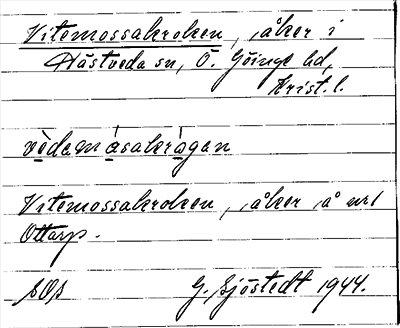 Vitemossakroken, åker i
Hästveda sn, Ö. Göinge hd,
Krist. l.
vèdamåsakrågan
Vitemossakroken, åker å nr 1
Ottarp.
G. Sjöstedt 1944.